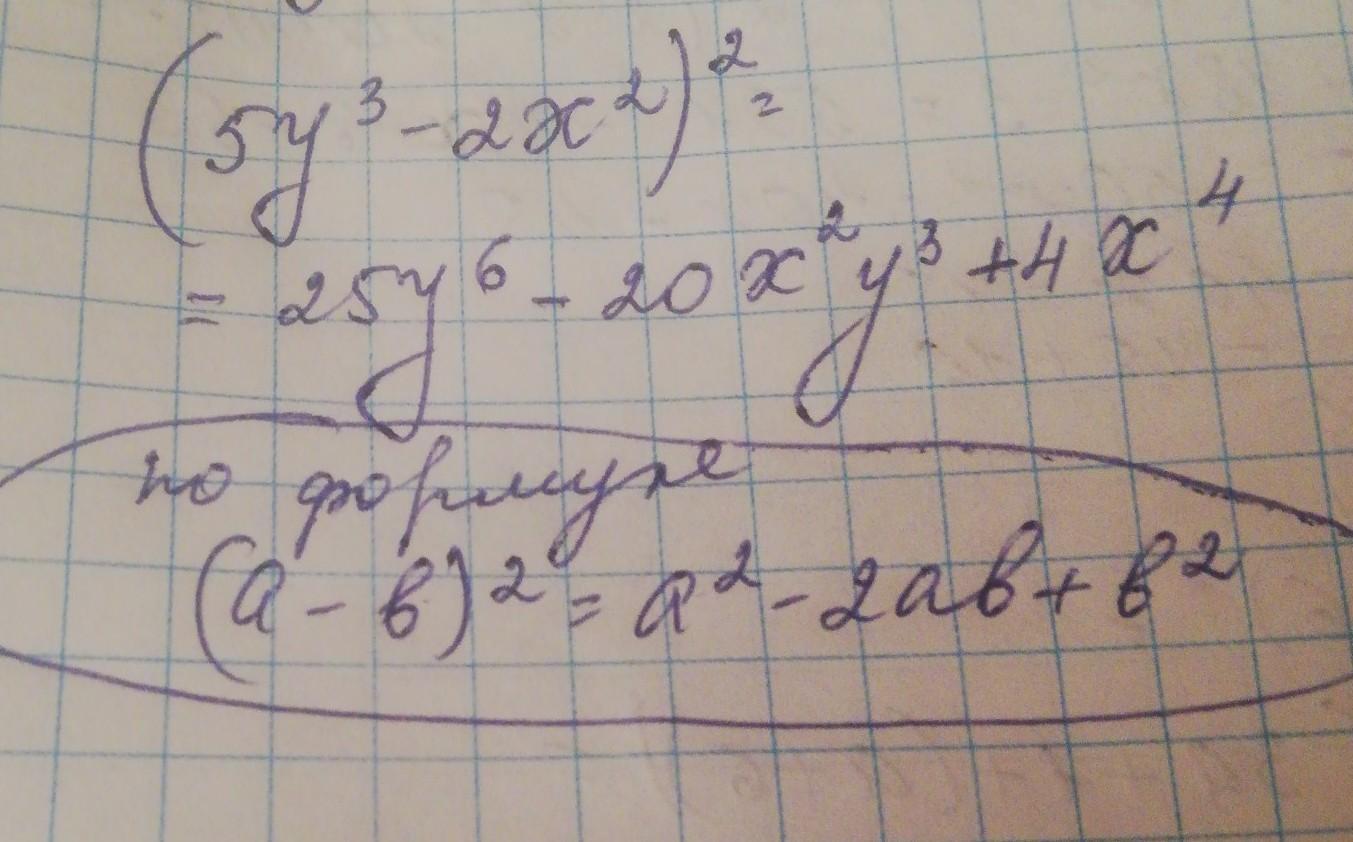 (5y³ - 2x²)² =
= 25y⁶ - 20x²y³ + 4x⁴
по формуле
(a - в)² = a² - 2aв + в²